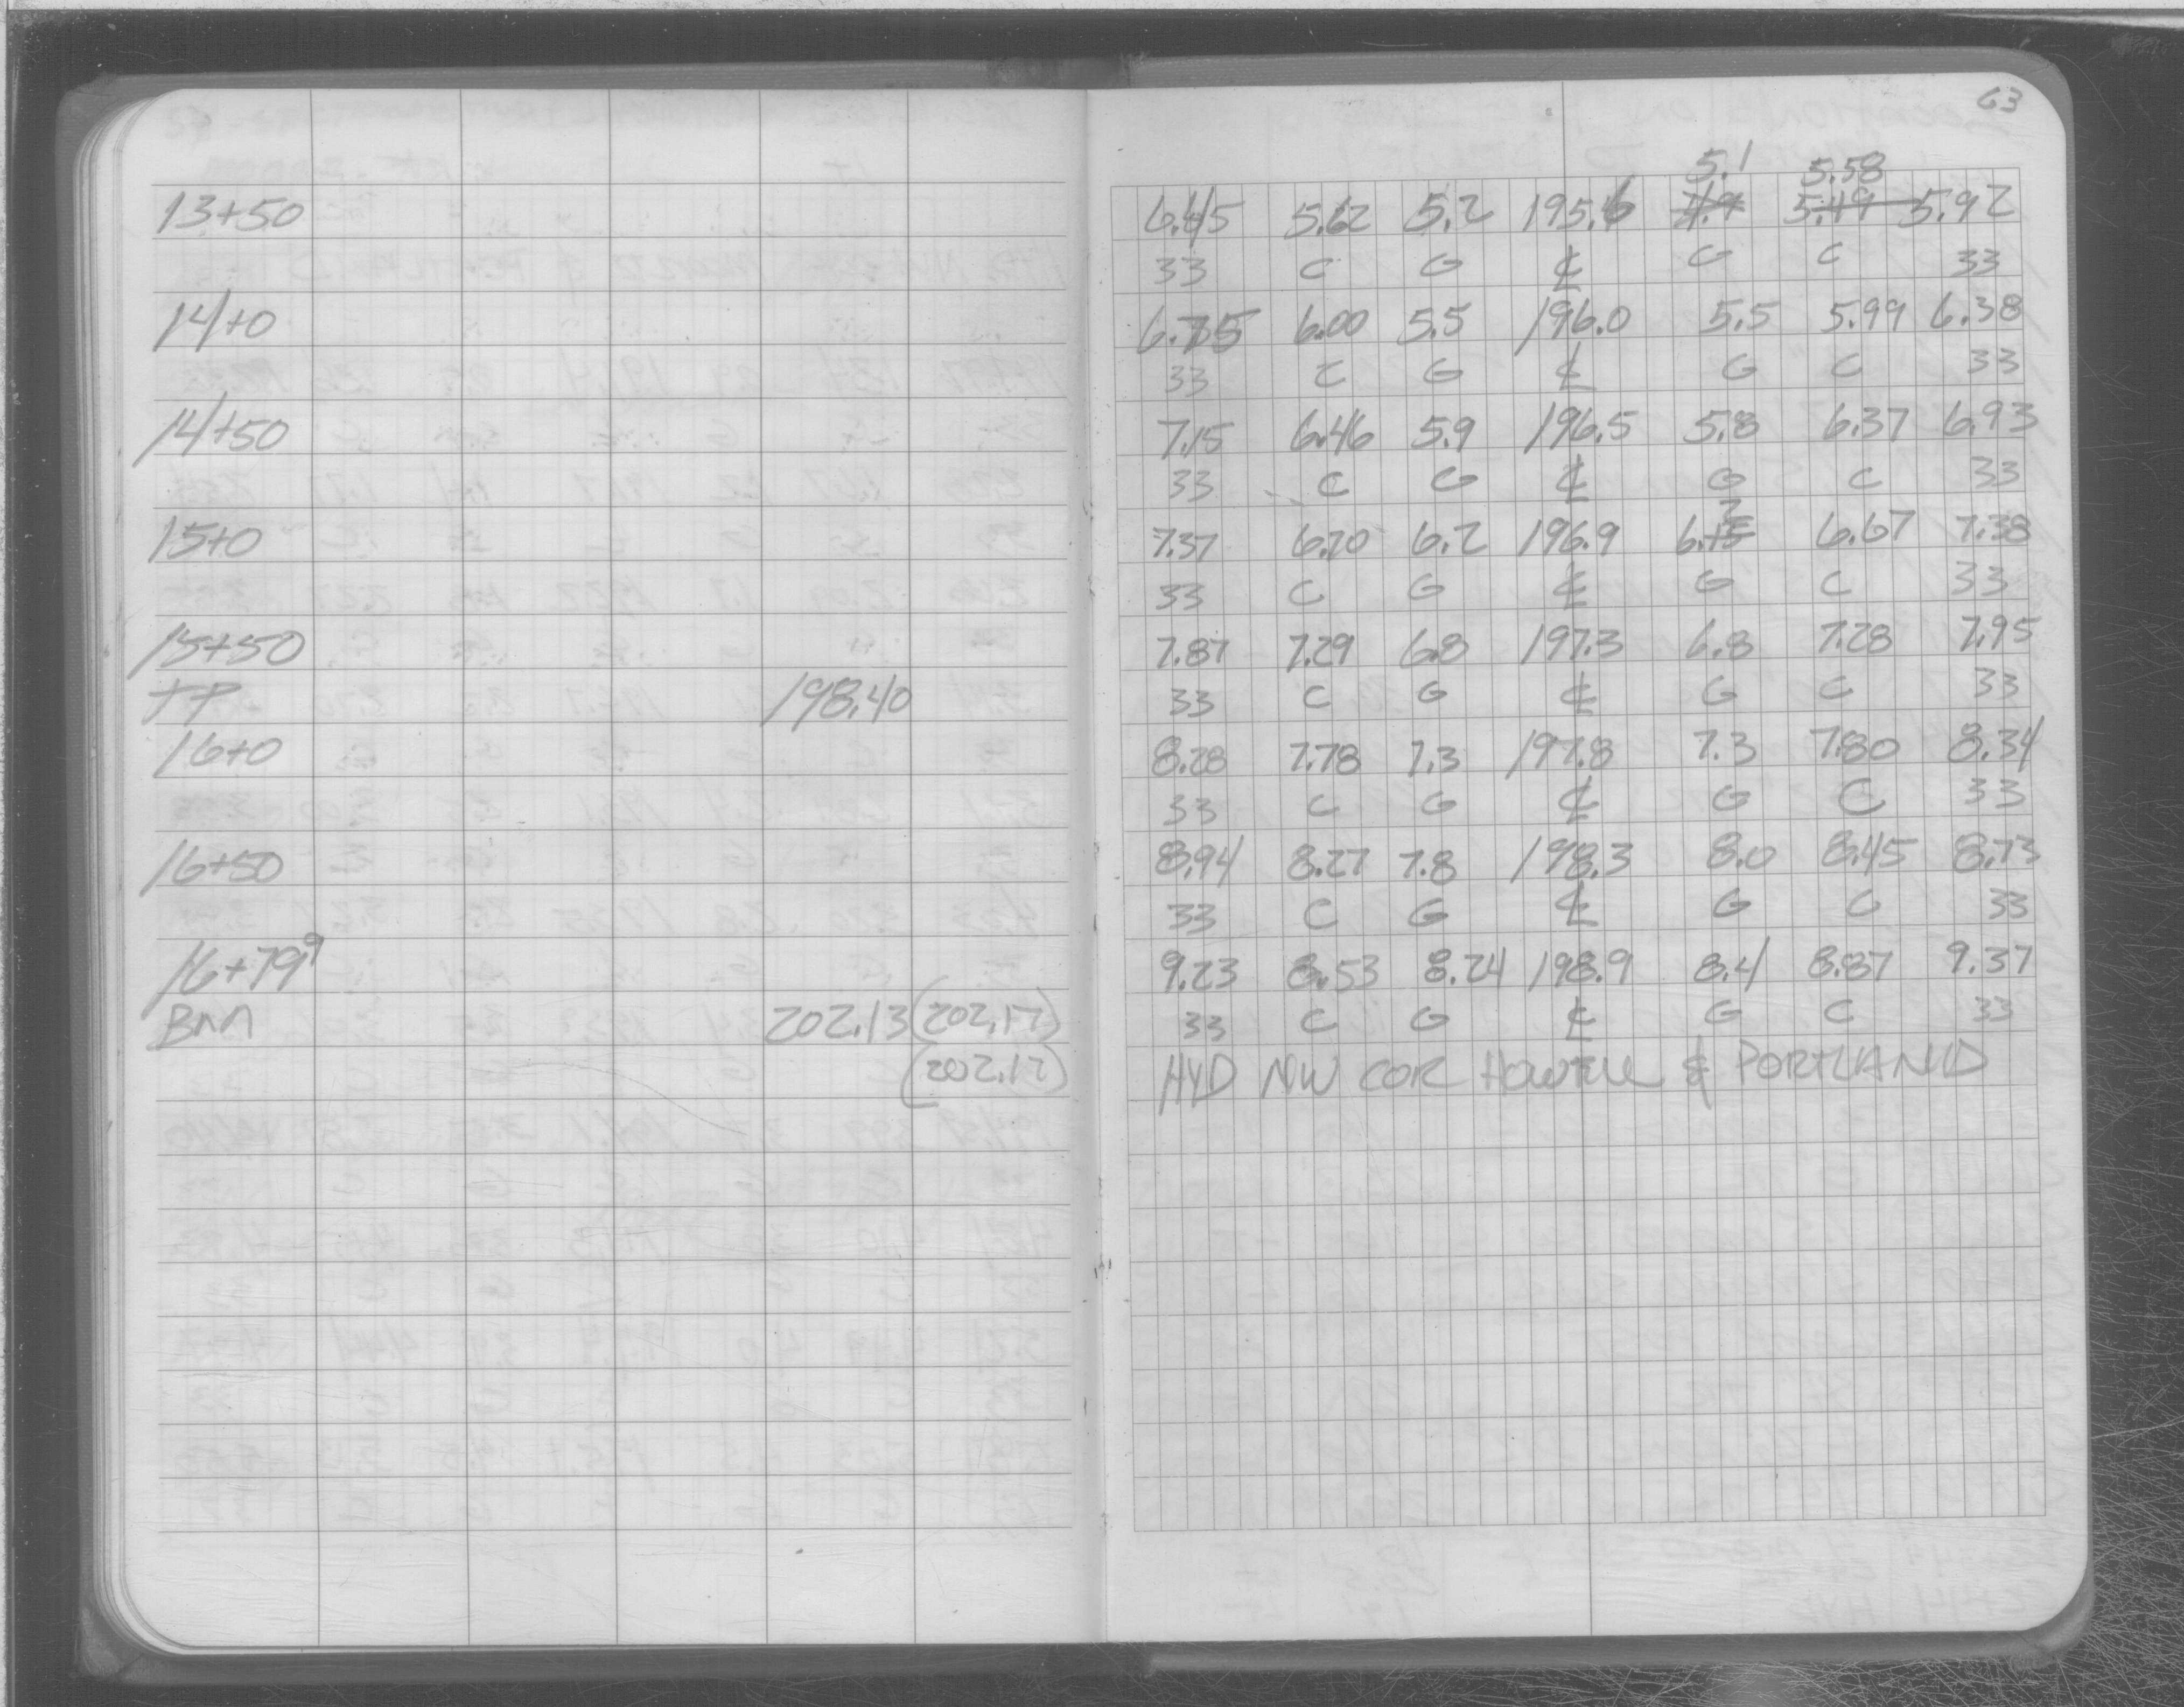 63
5.1 5.58
13+50 6.45 5.62 5.2 195.6 4.9 5.49 5.92
33 C G ℄ G C 33
14+0 6.75 6.00 5.5 196.0 5.5 5.99 6.38
33 C G ℄ G C 33
14+50 7.15 6.46 5.9 196.5 5.8 6.37 6.93
33 C G ℄ G C 33
2
15+0 7.37 6.70 6.2 196.9 6.15 6.67 7.38
33 C G ℄ G C 33
15+50 7.87 7.29 6.8 197.3 6.8 7.28 7.95
TP 198.40 33 C G ℄ G C 33
16+0 8.28 7.78 7.3 197.8 7.3 7.80 8.34
33 C G ℄ G C 33
16+50 8.94 8.27 7.8 198.3 8.0 8.45 8.73
33 C G ℄ G C 33
16+79⁹ 9.23 8.53 8.24 198.9 8.4 8.87 9.37
BM 202.13 (202.17) 33 C G ℄ G C 33
(202.17) HYD NW COR HOWELL & PORTLAND